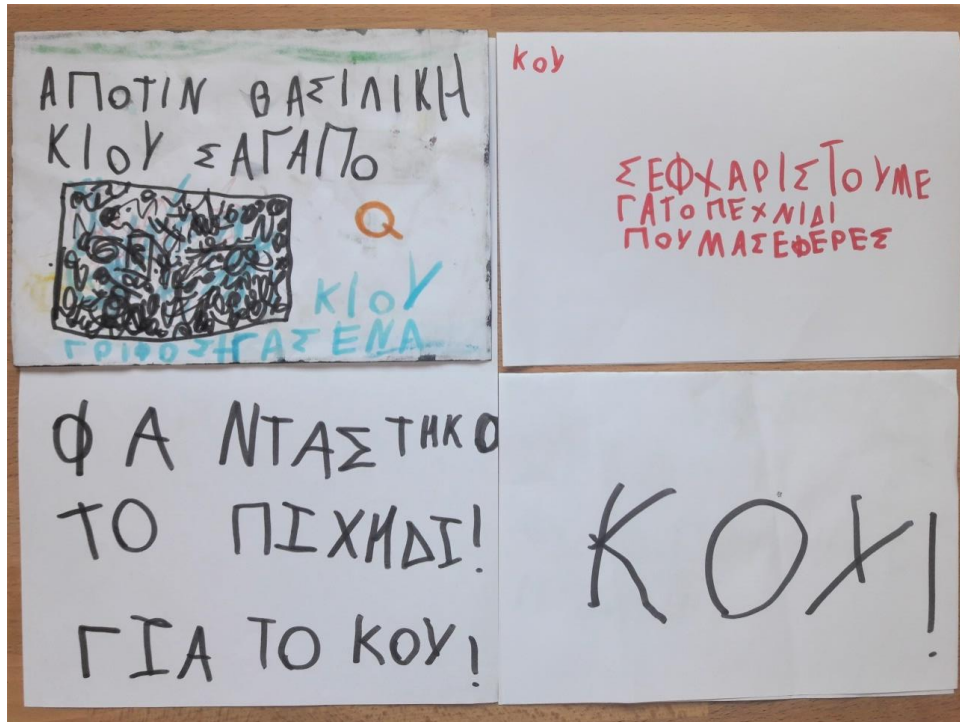 ΑΠΟΤΙΝ ΒΑΣΙΛΙΚΗ
ΚΙΟΥ ΣΑΓΑΠΟ
Q
ΚΙΟΥ
ΚΟΥ
ΣΕΦΧΑΡΙΣΤΟΥΜΕ
ΓΑΤΟΠΕΧΝΙΔΙ
ΠΟΥΜΑΣΕΦΕΡΕΣ
ΦΑΝΤΑΣΤΗΚΟ
ΤΟ ΠΙΧΗΔΙ!
ΓΙΑ ΤΟ ΚΟΥ!
ΚΟΥ!